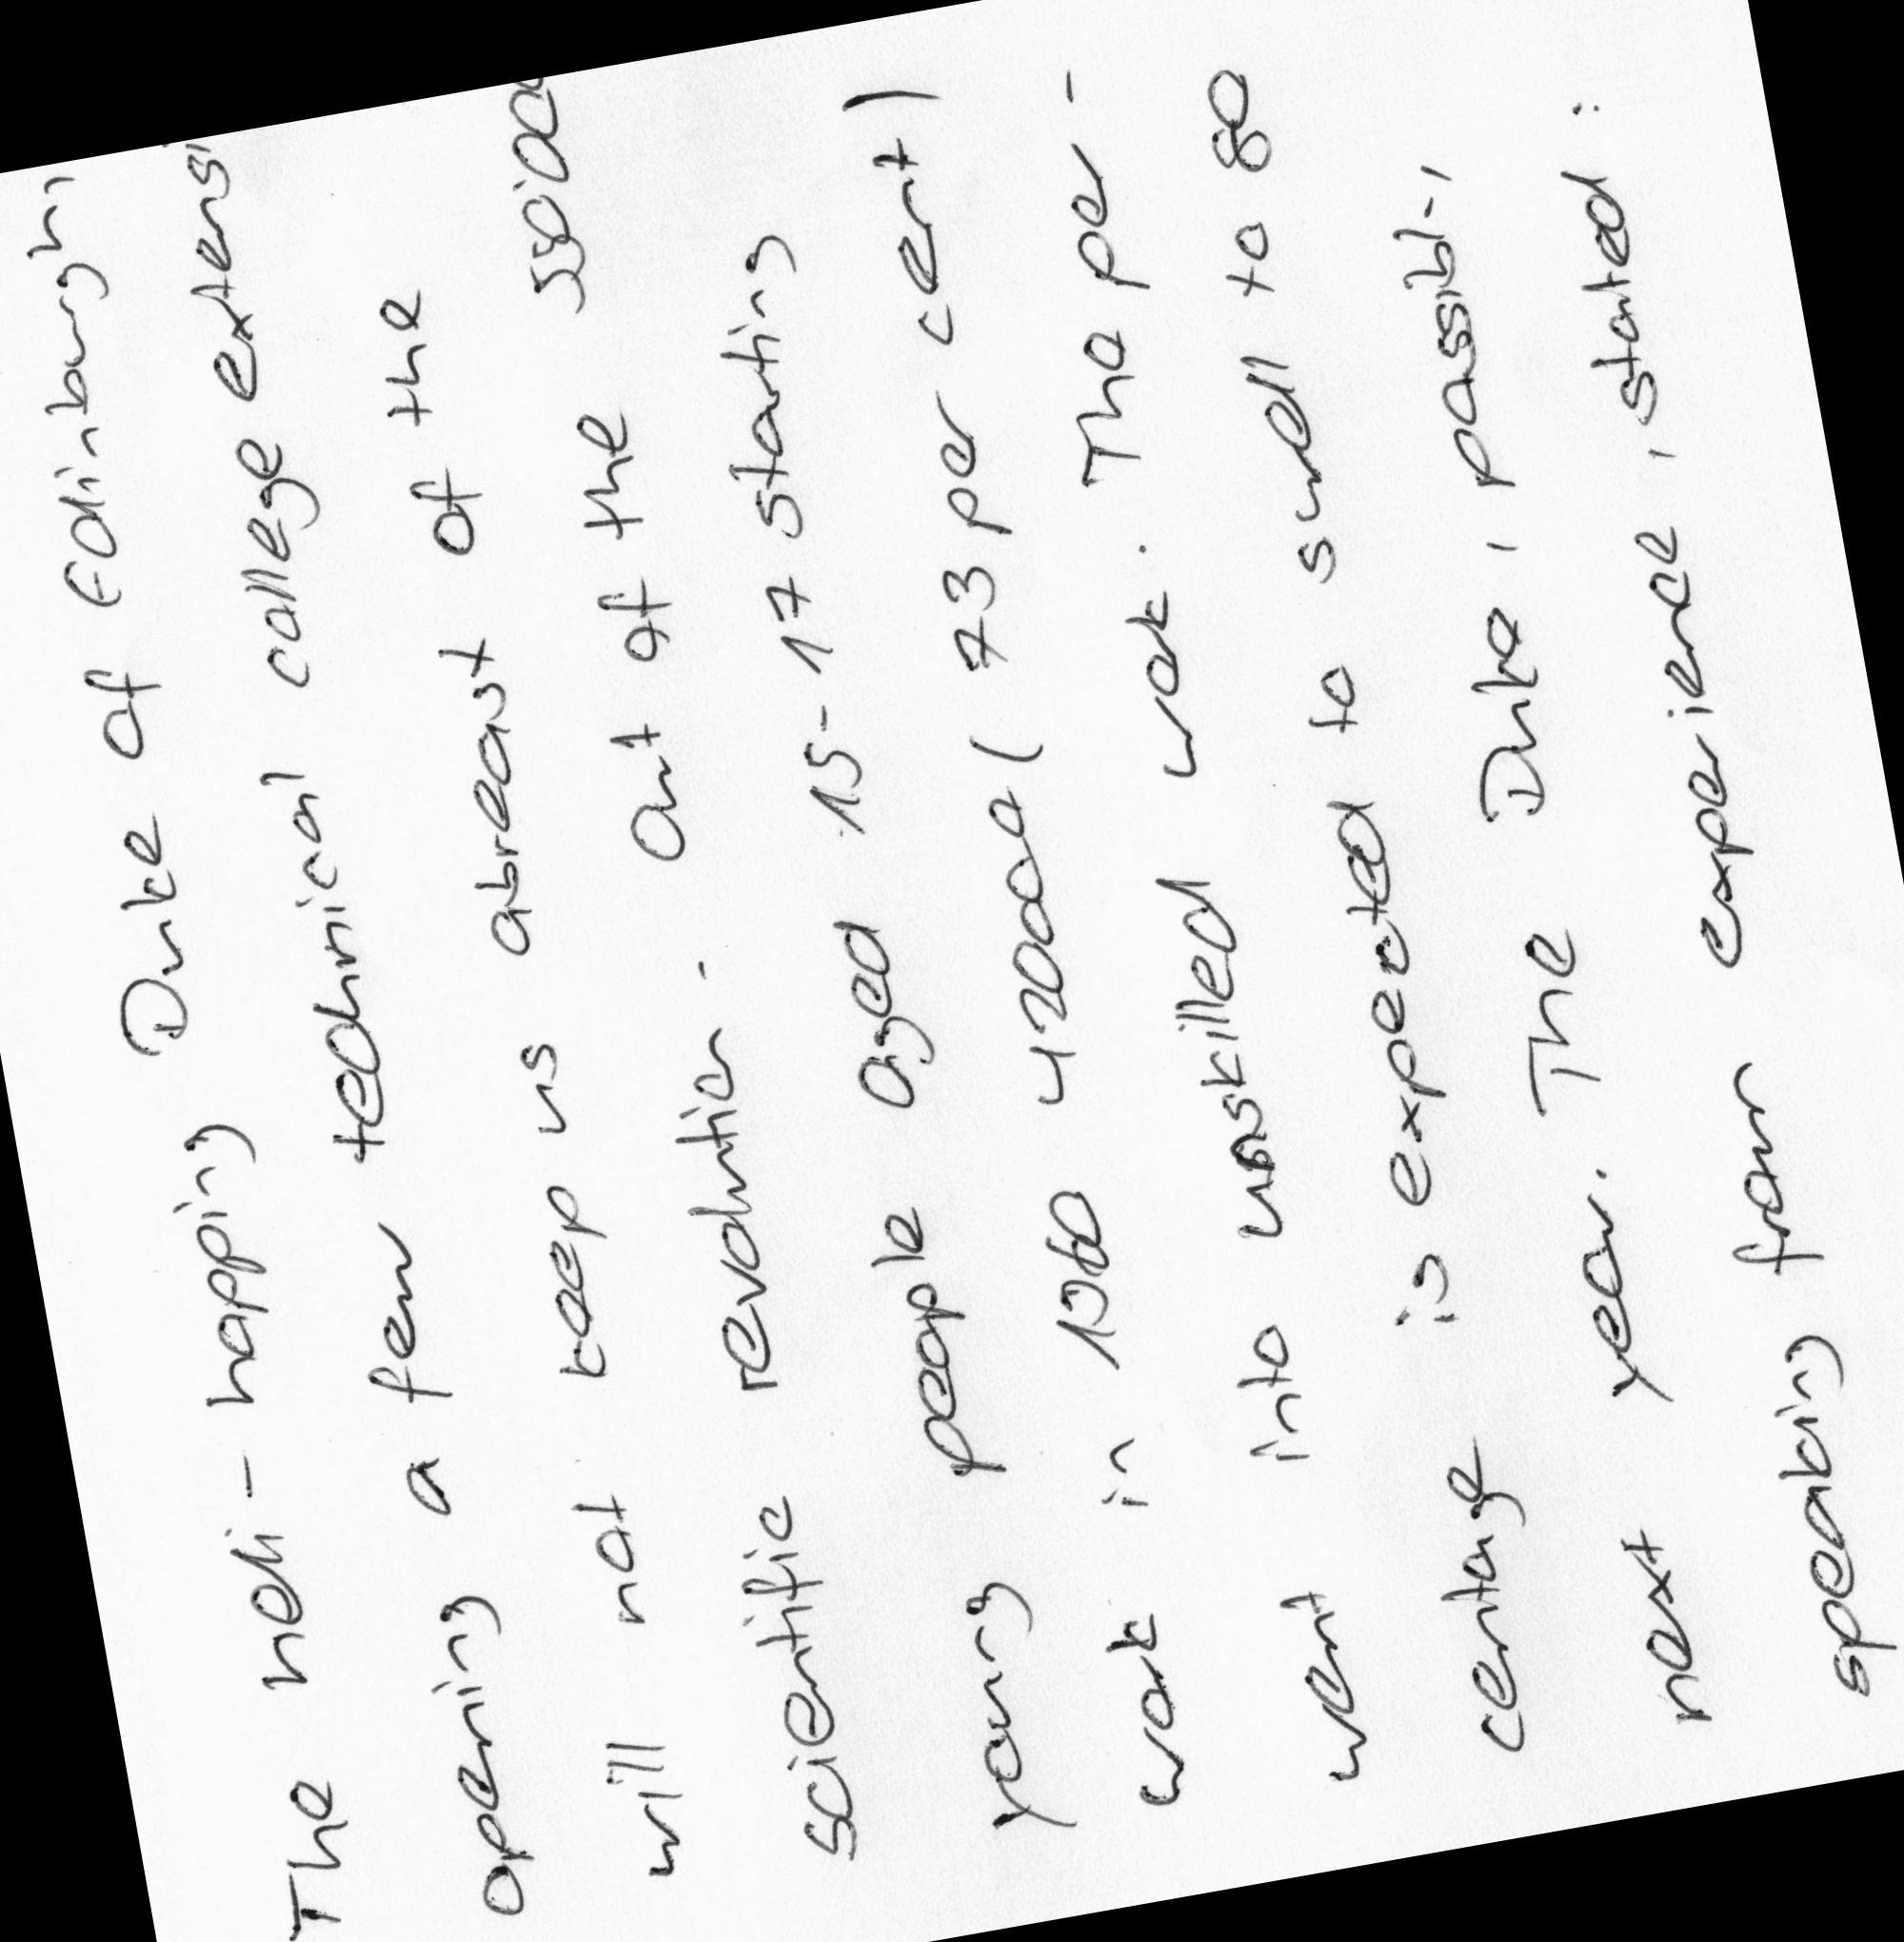 The heli-hopping Duke of Edinburgh,
opening a few technical college extensi
will not keep us abreast of the
scientific revolution. Out of the 558000
young people aged 15-17 starting
work in 1960 420000 ( 73 per cent )
went into unskilled wok. The per-
centage is expected to swell to 80
next year. The Duke, possibl-,
speaking from experience, stated: